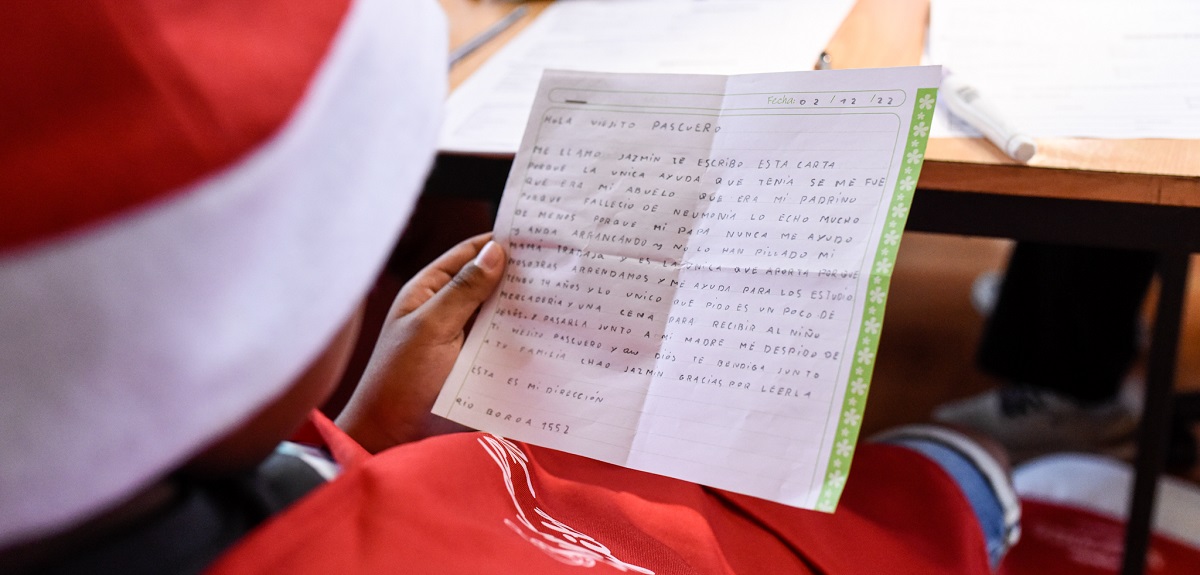 Fecha: 02 / 12 / 22
HOLA VIEJITO PASCUERO
ME LLAMO JAZMÍN TE ESCRIBO ESTA CARTA
PORQUE LA UNICA AYUDA QUE TENÍA SE ME FUE
QUE ERA MI ABUELO QUE ERA MI PADRINO
PORQUE FALLECIO DE NEUMONÍA LO ECHO MUCHO
DE MENOS PORQUE MI PAPA NUNCA ME AYUDO
Y ANDA ARRANCANDO Y NO LO HAN PILLADO MI
MAMÁ TRABAJA Y ES LA UNICA QUE APORTA PORQUE
NOSOTRAS ARRENDAMOS Y ME AYUDA PARA LOS ESTUDIO
TENGO 14 AÑOS Y LO UNICO QUE PIDO ES UN POCO DE
MERCADERÍA Y UNA CENA PARA RECIBIR AL NIÑO
JESÚS Y PASARLA JUNTO A MI MADRE ME DESPIDO DE
TI VIEJITO PASCUERO Y QUE DIOS TE BENDIGA JUNTO
A TU FAMILIA CHAO JAZMIN GRACIAS POR LEERLA
ESTA ES MI DIRECCIÓN
RIO BOROA 1552